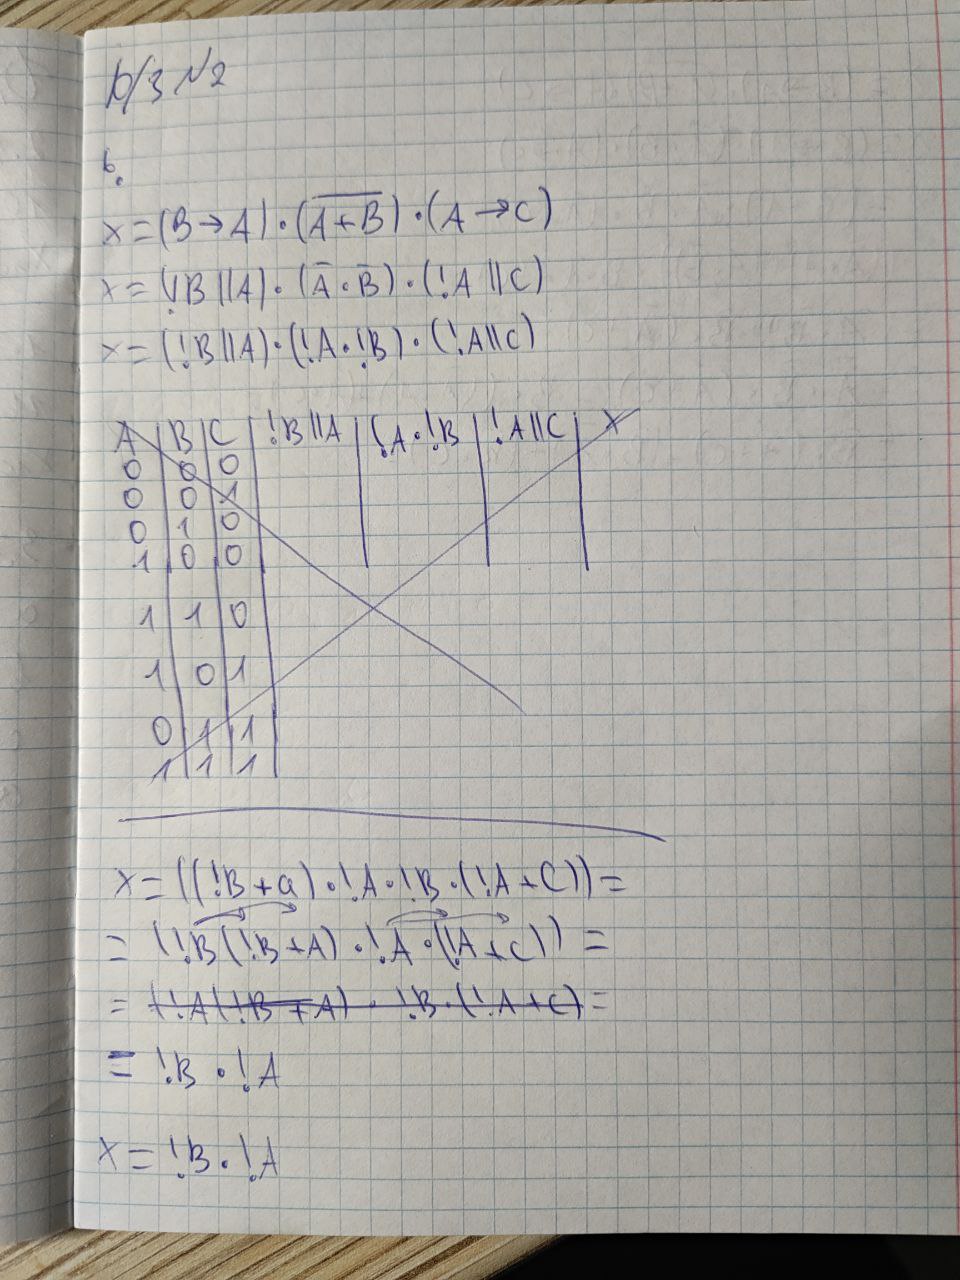 Д/З №2
6.
x = (B → A) · (\overline{A + B}) · (A → C)
x = (!B || A) · (Ā · B̄) · (!A || C)
x = (!B || A) · (!A · !B) · (!A || C)
A | B | C | !B || A | !A · !B | !A || C | X
0 | 0 | 0
0 | 0 | 1
0 | 1 | 0
1 | 0 | 0
1 | 1 | 0
1 | 0 | 1
0 | 1 | 1
1 | 1 | 1
x = ((!B + a) · !A · !B · (!A + C)) =
= (!B (!B + A) · !A · (!A + C)) =
= (!A (!B + A) · !B · (!A + C) =
= !B · !A
x = !B · !A